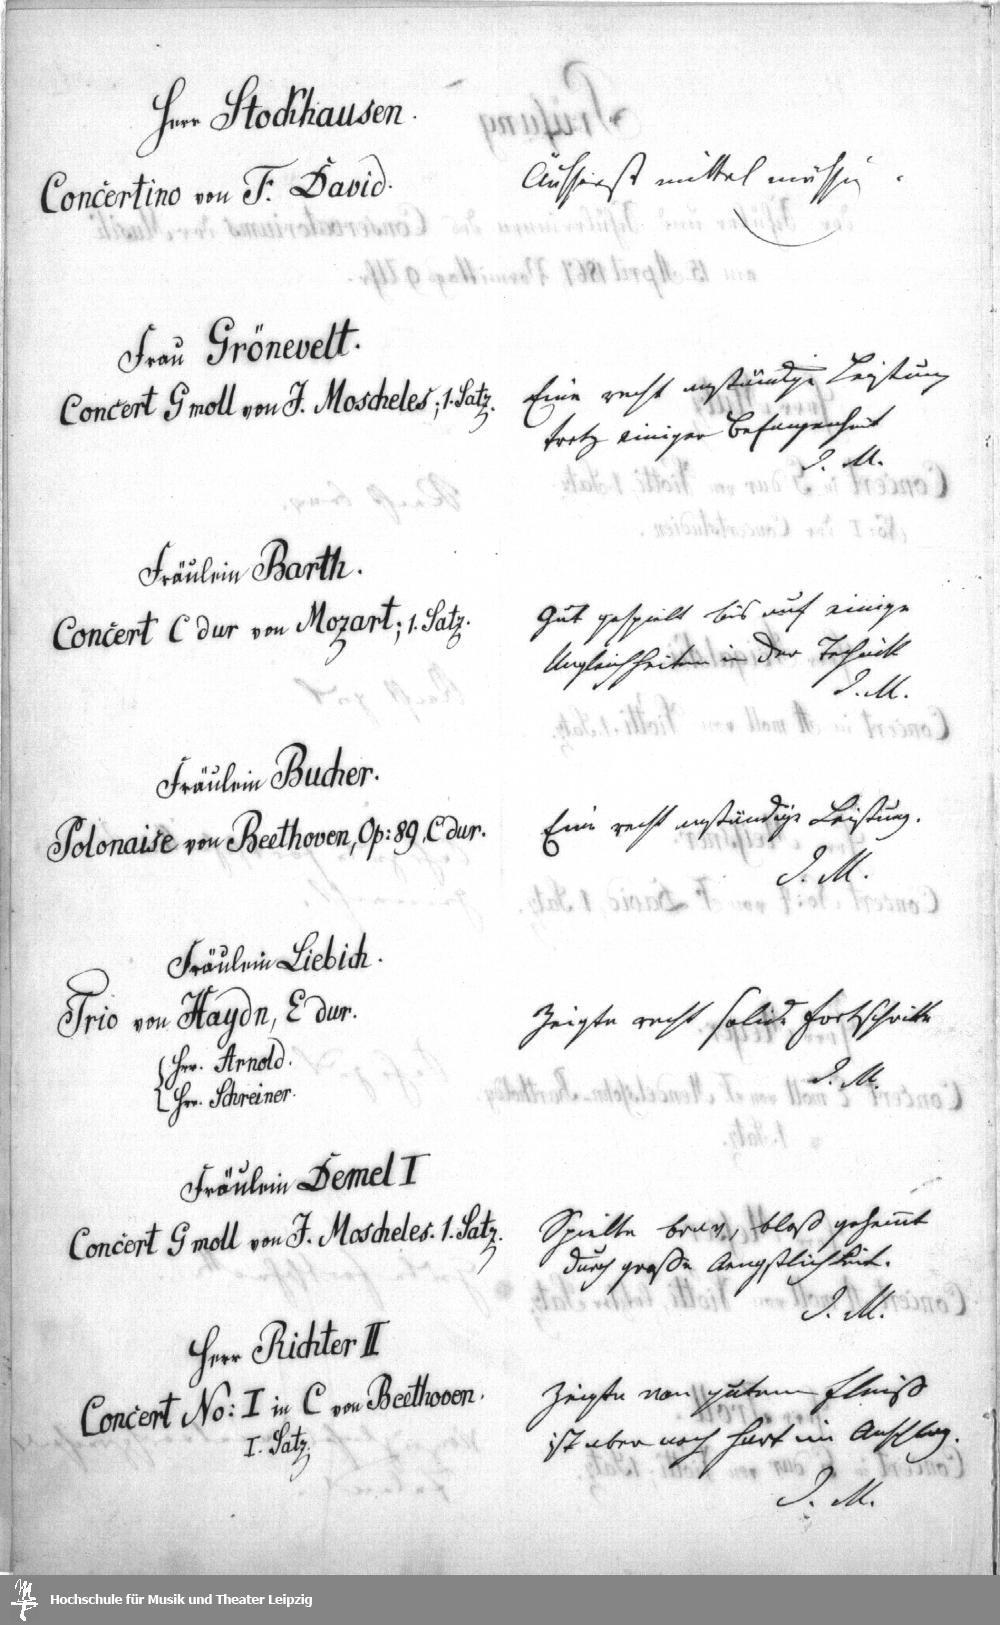 Herr Stockhausen.
Concertino von F. David.
Äusserst mittelmässig.
Frau Grönevelt.
Concert G moll von J. Moscheles; 1. Satz.
Eine recht anständige Leistung
trotz einiger Befangenheit
J. M.
Fräulein Barth.
Concert C dur von Mozart; 1. Satz.
Gut gespielt bis auf einige
Ungleichheiten in der Technik
J. M.
Fräulein Bucher.
Polonaise von Beethoven, Op: 89, C dur.
Eine recht anständige Leistung.
J. M.
Fräulein Liebich.
Trio von Haydn, E dur.
Hrr. Arnold.
Hrr. Schreiner.
Zeigte recht solide Fortschritte
J. M.
Fräulein Demel I
Concert G moll von J. Moscheles. 1. Satz.
Spielte brav, bloß gehemmt
durch große Aengstlichkeit.
J. M.
Herr Richter II
Concert No: I in C von Beethoven.
I. Satz.
Zeigte von gutem Fleiß
ist aber noch hart im Anschlag.
J. M.
Hochschule für Musik und Theater Leipzig